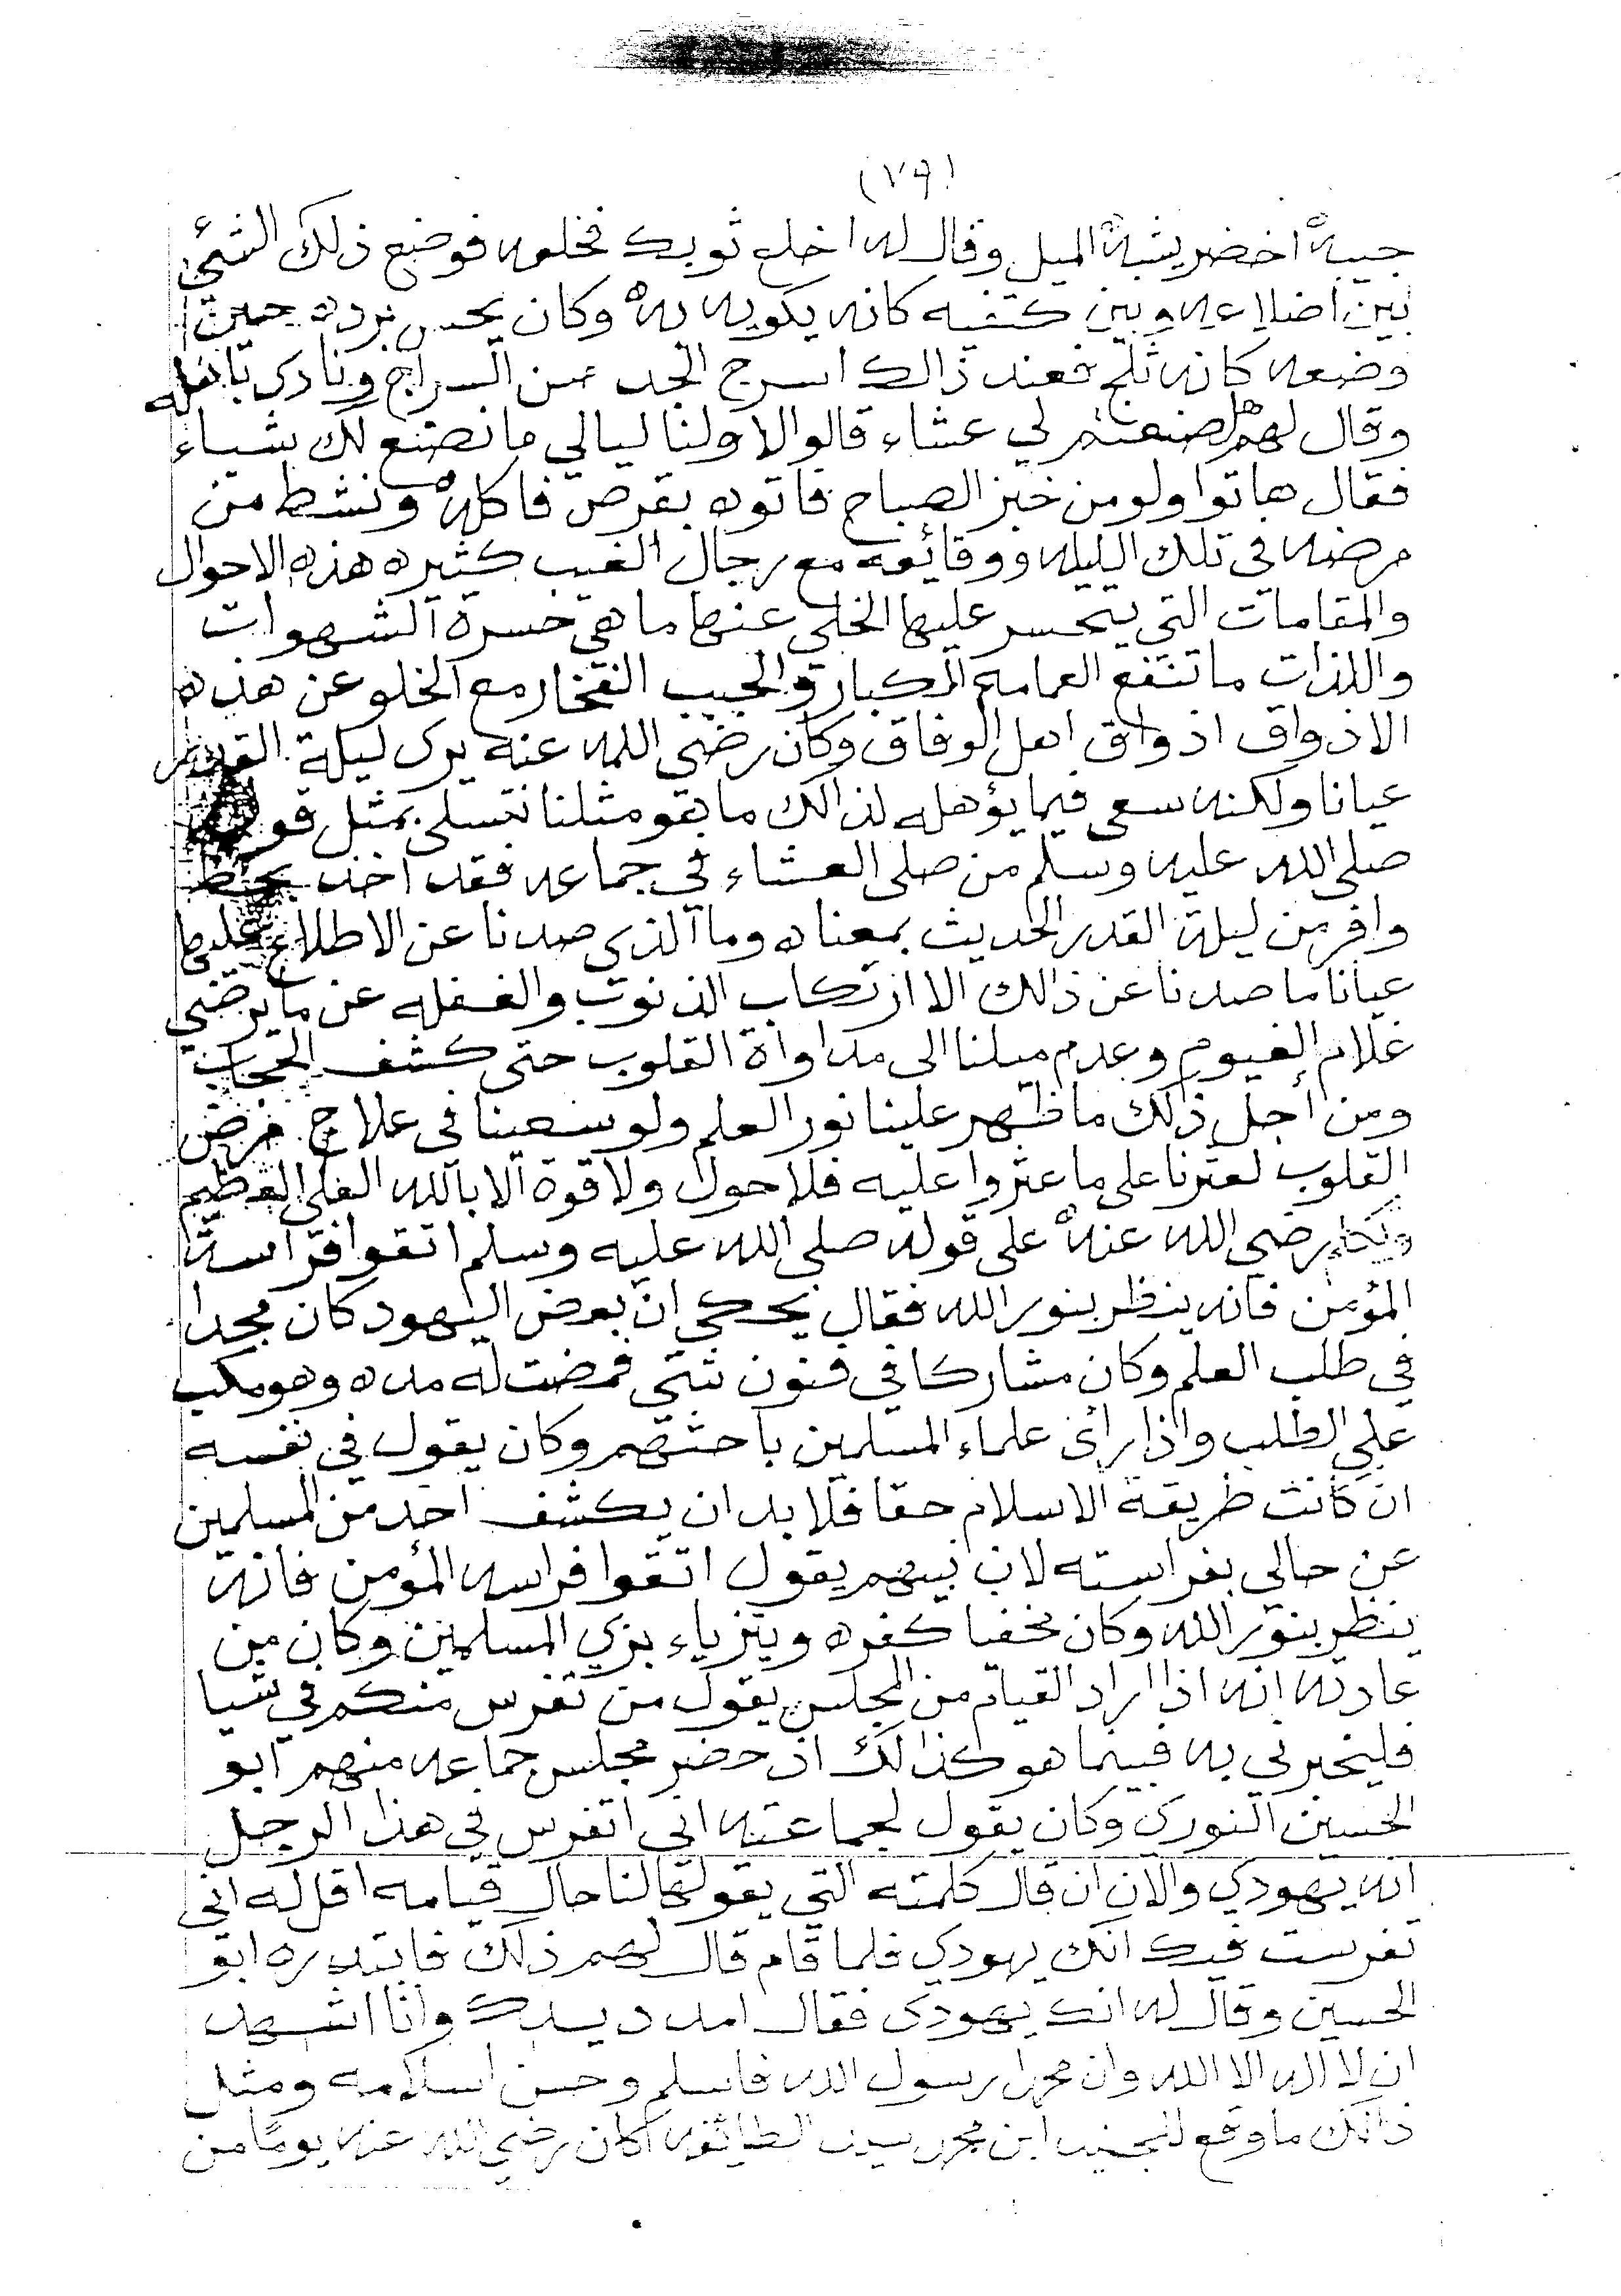 (٧٩)
جيبه اخضر يشبه الميل وقال له اخلع ثوبك فخلعه فوضع ذلك الشئ
بين اضلاعه وبين كتفيه كانه يكويه به وكان يحس برده حين
وضعه كانه ثلج فعند ذالك اسرج الجد حسن السراج ونادى باهله
وقال لهم هل صنعتم لي عشاء قالوا لا ولنا ليالي ما نصنع لك شياء
فقال هاتوا ولو من خبز الصباح فاتوه بقرص فاكله ونشط من
مرضه في تلك الليله ووقائعه مع رجال الغيب كثيره هذه الاحوال
والمقامات التي يتحسر عليها الخلي عنها ما هي حسرة الشهوات
واللذات ما تنفع العمامه الكباره والجيب الفخار مع الخلو عن هذه
الاذواق اذواق اهل الوفاق وكان رضي الله عنه يرى ليلة القدر
عيانا ولكنه سعى فيما يؤهله لذالك ما هو مثلنا نتسلى بمثل قوله
صلى الله عليه وسلم من صلى العشاء في جماعه فقد اخذ بحظ
وافر من ليلة القدر الحديث بمعناه وما الذي صدنا عن الاطلاع عليها
عيانا ما صدنا عن ذالك الا ارتكاب الذنوب والغفله عن ما يرضي
علام الغيوم وعدم ميلنا الى مداواة القلوب حتى كشف الحجاب
ومن أجل ذلك ما ظهر علينا نور العلم ولو سعينا في علاج مرض
القلوب لعثرنا على ما عثروا عليه فلا حول ولا قوة الا بالله العلي العظيم
وتكلم رضي الله عنه على قوله صلى الله عليه وسلم اتقوا فراسة
المؤمن فانه ينظر بنور الله فقال يحكي ان بعض اليهود كان مجدا
في طلب العلم وكان مشاركا في فنون شتى فمضت له مده وهو مكب
على الطلب واذا رأى علماء المسلمين باحثهم وكان يقول في نفسه
ان كانت طريقة الاسلام حقا فلا بد ان يكشف احد من المسلمين
عن حالي بفراسته لان نبيهم يقول اتقوا فراسه المؤمن فانه
ينظر بنور الله وكان مخفيا كفره ويتزياء بزي المسلمين وكان من
عادته انه اذا اراد القيام من المجلس يقول من تفرس منكم في شيا
فليخبرني به فبينما هو كذالك اذ حضر مجلس جماعه منهم ابو
الحسين النوري وكان يقول لجماعته اني اتفرس في هذا الرجل
انه يهودي والان ان قال كلمته التي يقولها لنا حال قيامه اقل له اني
تفرست فيك انك يهودي فلما قام قال لهم ذلك فابتدره ابو
الحسين وقال له انك يهودى فقال امدد يدك وانا اشهد
ان لا اله الا الله وان محمدا رسول الله فاسلم وحسن اسلامه ومثل
ذالك ما وقع للجنيد ابن محمد سيد الطائفه كان رضي الله عنه يومًا من